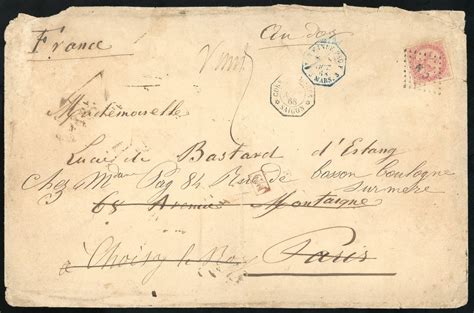 France
Mademoiselle
Lucie de Bastard d'Estang
Chez Mme Pag 84 Rue de
boulogne
sur mer
68 Avenue Montaigne
à Choisy le Roy Paris
SAIGON